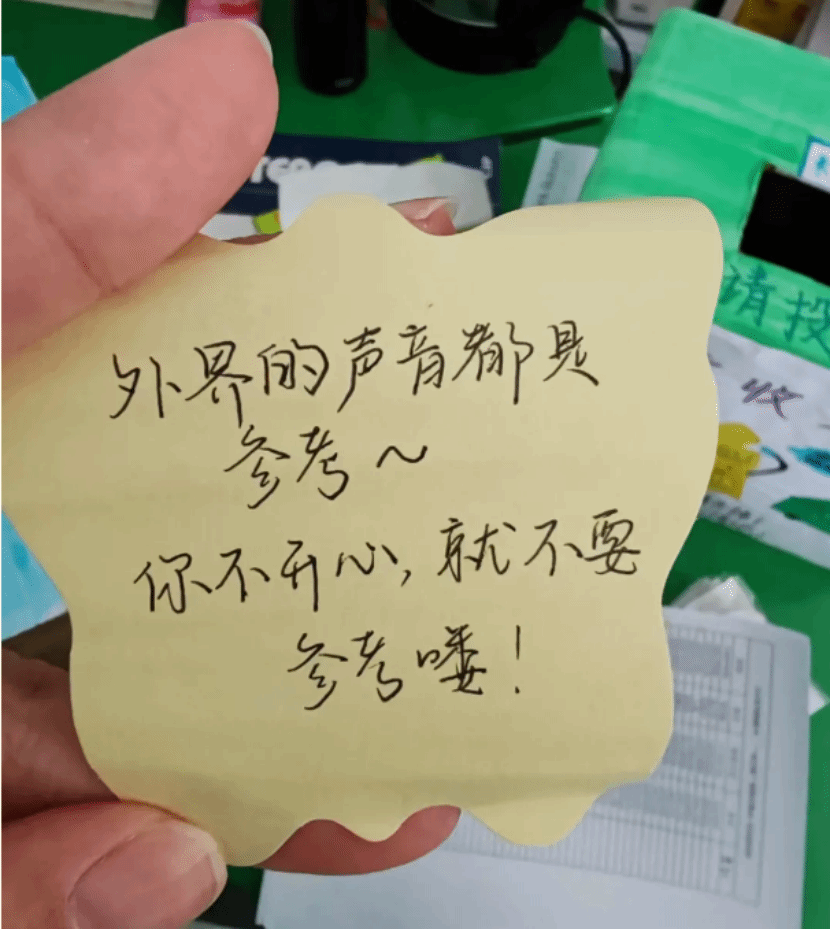 外界的声音都是
参考～
你不开心，就不要
参考喽！
请投
收